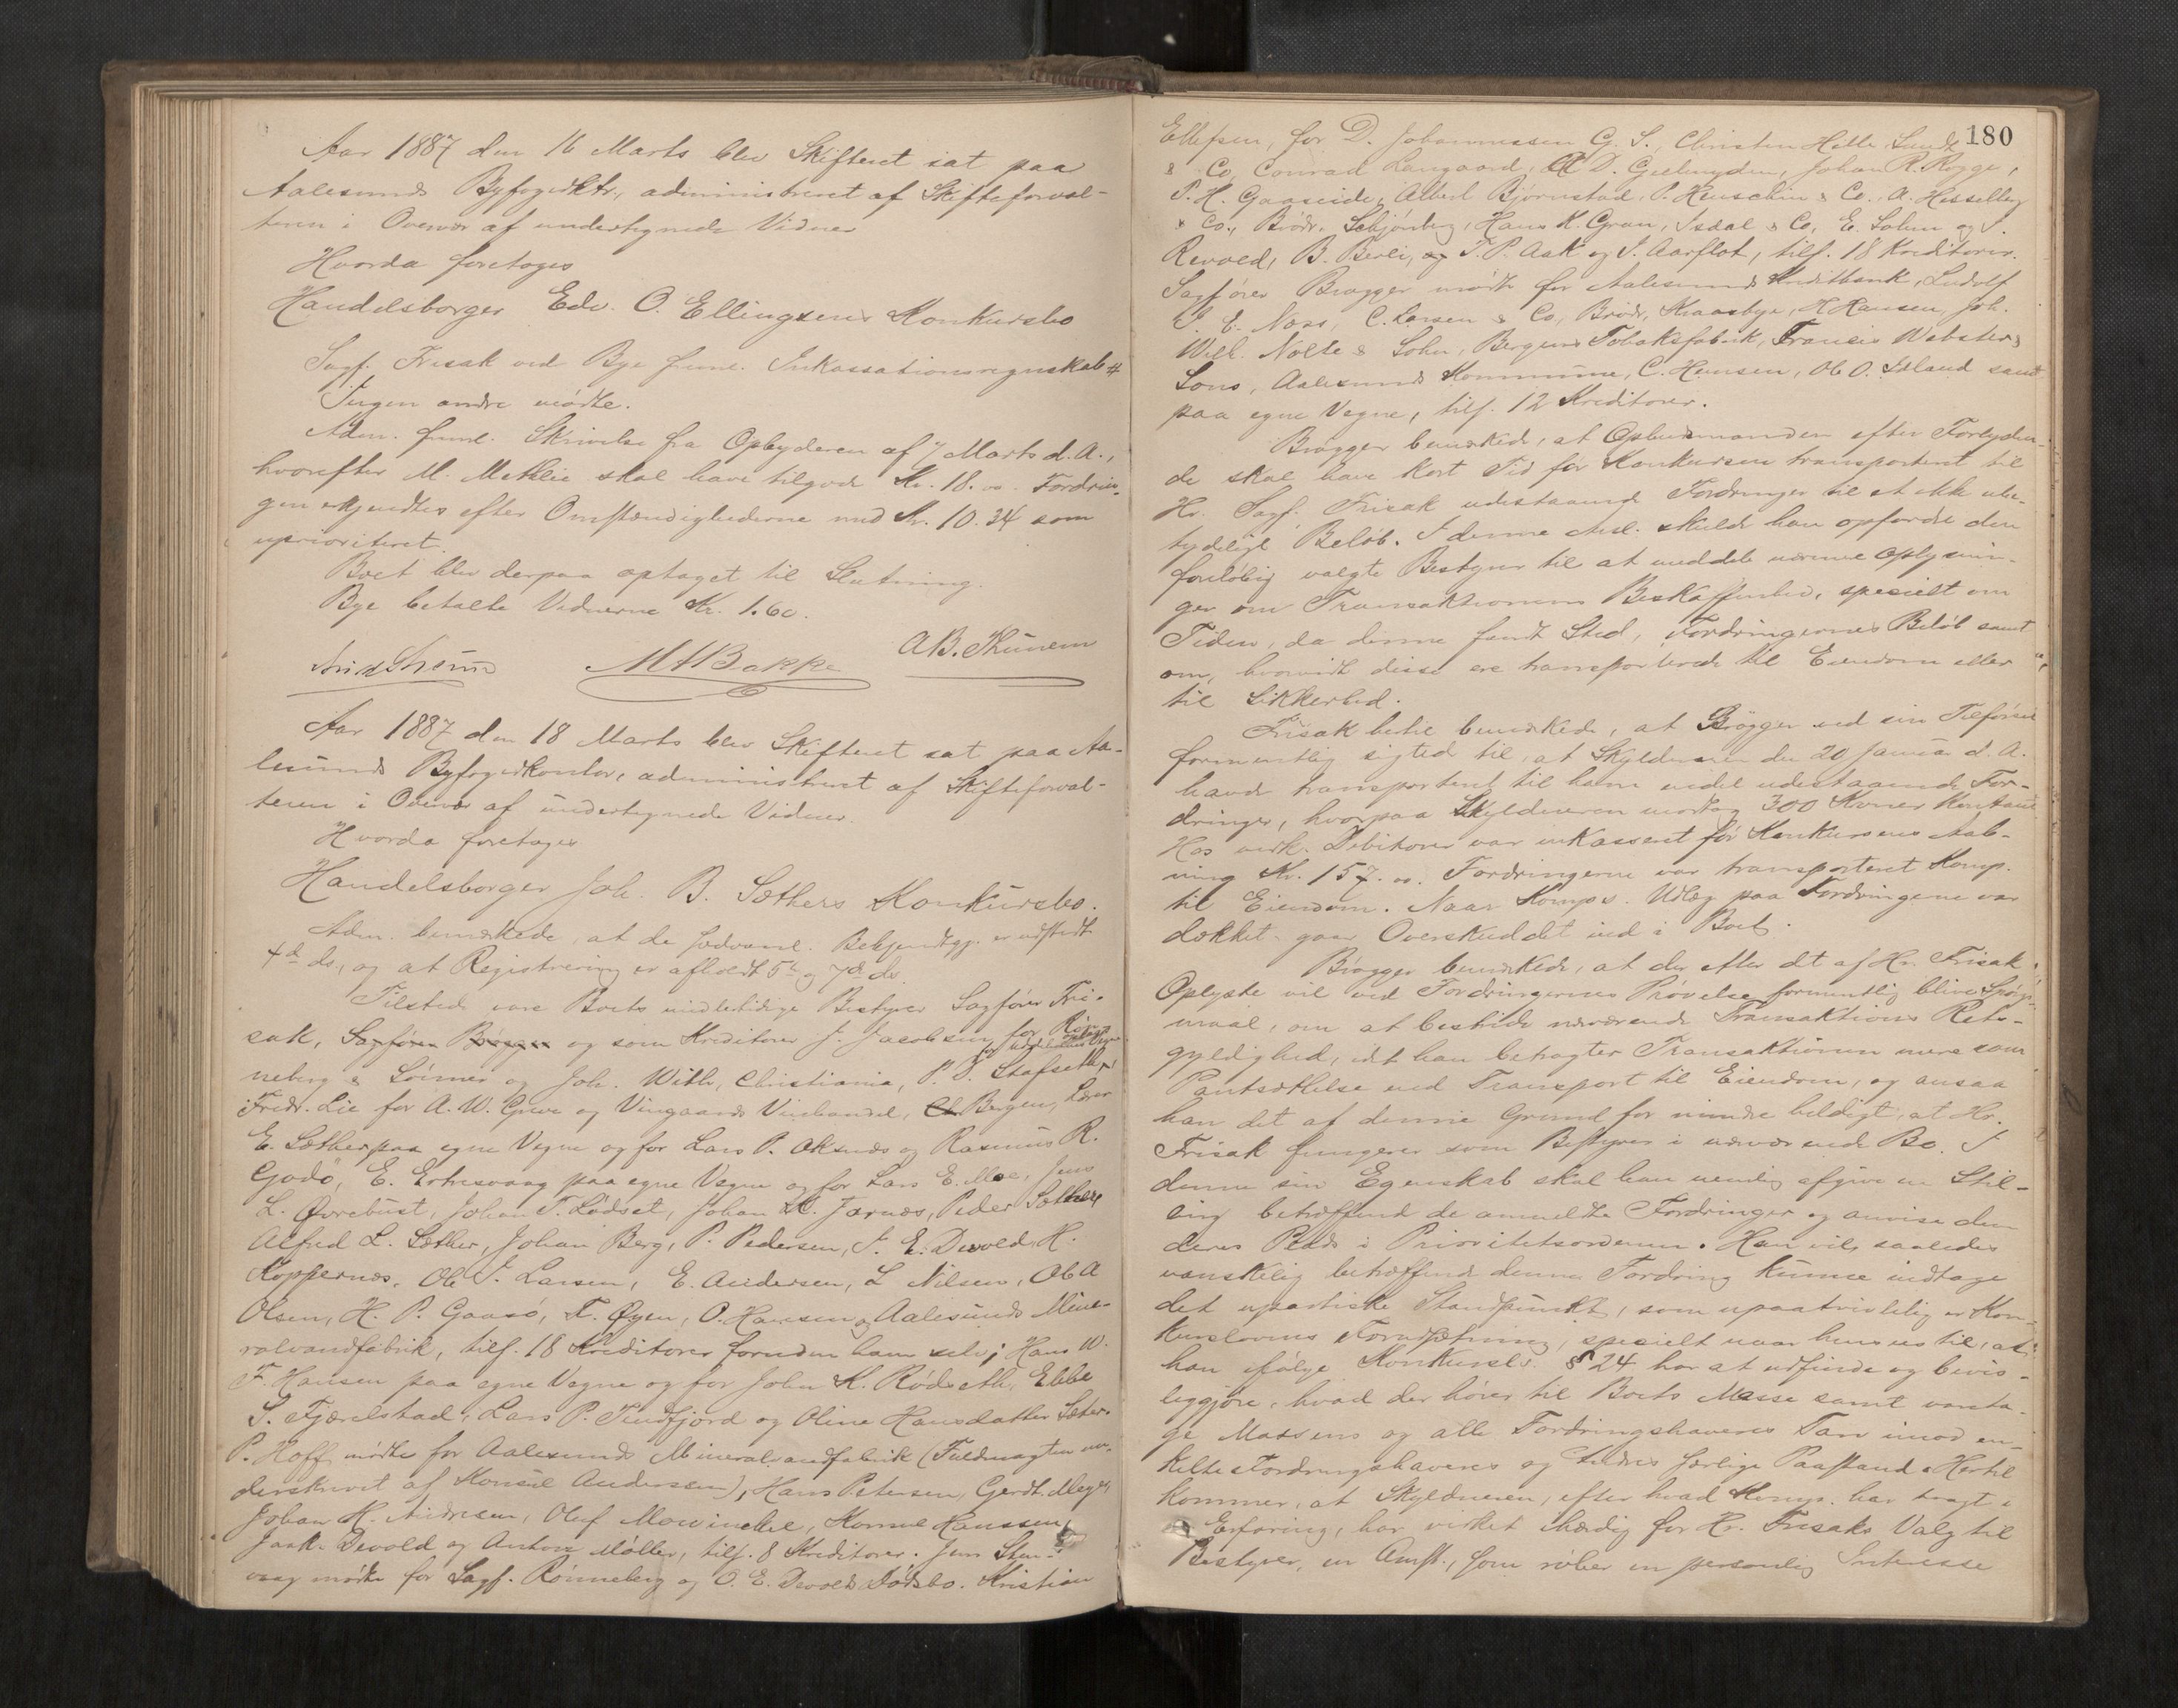 Aar 1887 den 16 Marts blev Skifteret sat paa
Aalesunds Byfogedktr., administreret af Skifteforval-
teren i Overvær af undertegnede Vidner
Hvorda foretoges
Handelsborger Edv. O. Ellingsens Konkursbo
Sagf. Frisak ved Bye freml. Inkassationsregnskab #
Ingen andre mødte.
Adm. freml. Skrivelse fra Opbyderen af 7 Marts d.A.,
hvorefter M. Methlie skal have tilgode Kr. 18.00. Fordrin-
gen erkjendtes efter Omstændighederne med Kr. 10.34 som
uprioriteret.
Boet blev derpaa optaget til Slutning.
Bye betalte Vidnerne Kr. 1.60.
MABakke A.B. Thunem
Aar 1887 den 18 Marts blev Skifteret sat paa Aa-
lesunds Byfogedkontor, administreret af Skifteforval-
teren i Overvær af undertegnede Vidner.
Hvorda foretoges
Handelsborger Joh. B. Sæthers Konkursbo.
Adm. bemærkede, at de sædvanl. Bekjendtgj. er udstedt
4de ds., og at Registrering er afholdt 5te og 7de ds.
Tilstede vare Boets midlertidige Bestyrer Sagfører Fri-
sak, Sagfører Brøgger og som Kreditorer J. Jacobsen for Røn-
neberg & Sønner og Joh. With, Christiania, P. S. Stafseth,
Fredr. Lie for A. W. Greve og Vingaards Vinhandel, Bergen, Lærer
E. Sæther paa egne Vegne og for Lars P. Aksnæs og Rasmus R.
Godø, E. Ertresvaag paa egne Vegne og for Lars E. Moe, Jens
L. Øvrebust, Johan T. Lødset, Johan K. Jarnæs, Peder Sæther,
Alfred L. Sæther, Johan Berg, P. Pedersen, J. E. Devold, H.
Koppernæs, Ole J. Larsen, E. Andersen, L. Nilsen, Ole A
Olsen, H. P. Gaasø, T. Øyen, O. Hansen og Aalesunds Mine-
ralvandfabrik, tils. 18 Kreditorer foruden ham selv; Hans W.
F. Hansen paa egne Vegne og for John K. Rødseth, Ebbe
S. Fjærelstad, Lars P. Tuefjord og Oline Hansdatter Sæter.
P. Hoff mødte for Aalesunds Mineralvandfabrik (Fuldmagten un-
derskrevet af Konsul Anderssen), Hans Petersen, Gerdt. Meyer,
Johan H. Andresen, Oluf Mowinckel, Kornel Hanssen,
Jaak. Devold og Anton Møller, tils. 8 Kreditorer. Jens Sten-
vaag mødte for Sagf. Rønneberg og O. E. Devolds Dødsbo. Kristian
180
Ellefsen, for D. Johannessen G. S., Christen Helle, Sundt
& Co, Conrad Langaard, D. Geelmuyden, Johan R. Rogge,
P. H. Gaaseide, Albert Bjørnstad, P. Henschien & Co., A. Hesselberg
& Co., Brødr. Schjønberg, Hans K. Gran, Isdal & Co, E. Sohm og J.
Revold, B. Berli, T. P. Aak og J. Aarflot, tils. 18 Kreditorer.
Sagfører Brøgger mødte for Aalesunds Kreditbank, Ludolf
J. E. Næss, C. Larsen & Co, Brødr. Kraasbye, H Hansen, Joh.
Wilh. Nolte & Sohn, Bergens Tobaksfabrik, Francis Webster &
Sons, Aalesunds Kommune, C. Hansen, Ole O. Ildland samt
paa egne Vegne, tils. 12 Kreditorer.
Brøgger bemærkede, at Opbudsmanden efter Forlyden-
de skal have kort Tid før Konkursen transporteret til
Hr. Sagf. Frisak udestaaende Fordringer til et ikke ube-
tydeligt Beløb. I denne Anl. skulde han opfordre den
foreløbig valgte Bestyrer til at meddele nærmere Oplysnin-
ger om Transaktionens Beskaffenhed, specielt om
Tiden, da denne fandt Sted, Fordringernes Beløb samt
om, hvorvidt disse ere transporterede til Eiendom eller
til Sikkerhed.
Frisak hertil bemærkede, at Brøgger ved sin Tilførsel
formentlig sigted til, at Skyldneren den 20 Januar d. A.
havde transporteret til ham endel udestaaende For-
dringer, hvorpaa Skyldneren modtog 300 Kroner kontant
Hos vedk. Debitorer var inkasseret før Konkursens Aab-
ning Kr. 157.00. Fordringerne var transporteret Komp.
til Eiendom. Naar Komps. Udlæg paa Fordringene var
dækket gaar Overskuddet ind i Boet.
Brøgger bemærkede, at der efter det af Hr. Frisak
Oplyste vil ved Fordringernes Prøvelse formentlig blive Spørgs-
maal, om at bestride nærværende Transaktions Rets-
gyldighed, idet han betragter Transaktionen mere som
Pantsættelse end Transport til Eiendom, og ansaa
han det af denne Grund for mindre heldigt, at Hr.
Frisak fungerer som Bestyrer i nærværende Bo. I
denne sin Egenskab skal han nemlig afgive en Stil-
ling betræffende de anmeldte Fordringer og anvise dem
deres Plads i Prioritetsordenen. Han vil saaledes
vanskelig betræffende denne Fordring kunne indtage
det upartiske Standpunkt, som upaatvivlelig er Kon-
kurslovens Forudsætning, specielt naar henses til, at
han ifølge Konkursls. § 24 har at udfinde og bevis-
liggjøre, hvad der hører til Boets Masse samt vareta-
ge Massens og alle Fordringshaveres Tarv imod en-
kelte Fordringshaveres og Andres særlige Paastand. Hertil
kommer, at Skyldneren, efter hvad Komp. har bragt i
Erfaring, har virket ihærdig for Hr. Frisaks Valg til
Bestyrer, en Omst., som røber en personlig Interesse